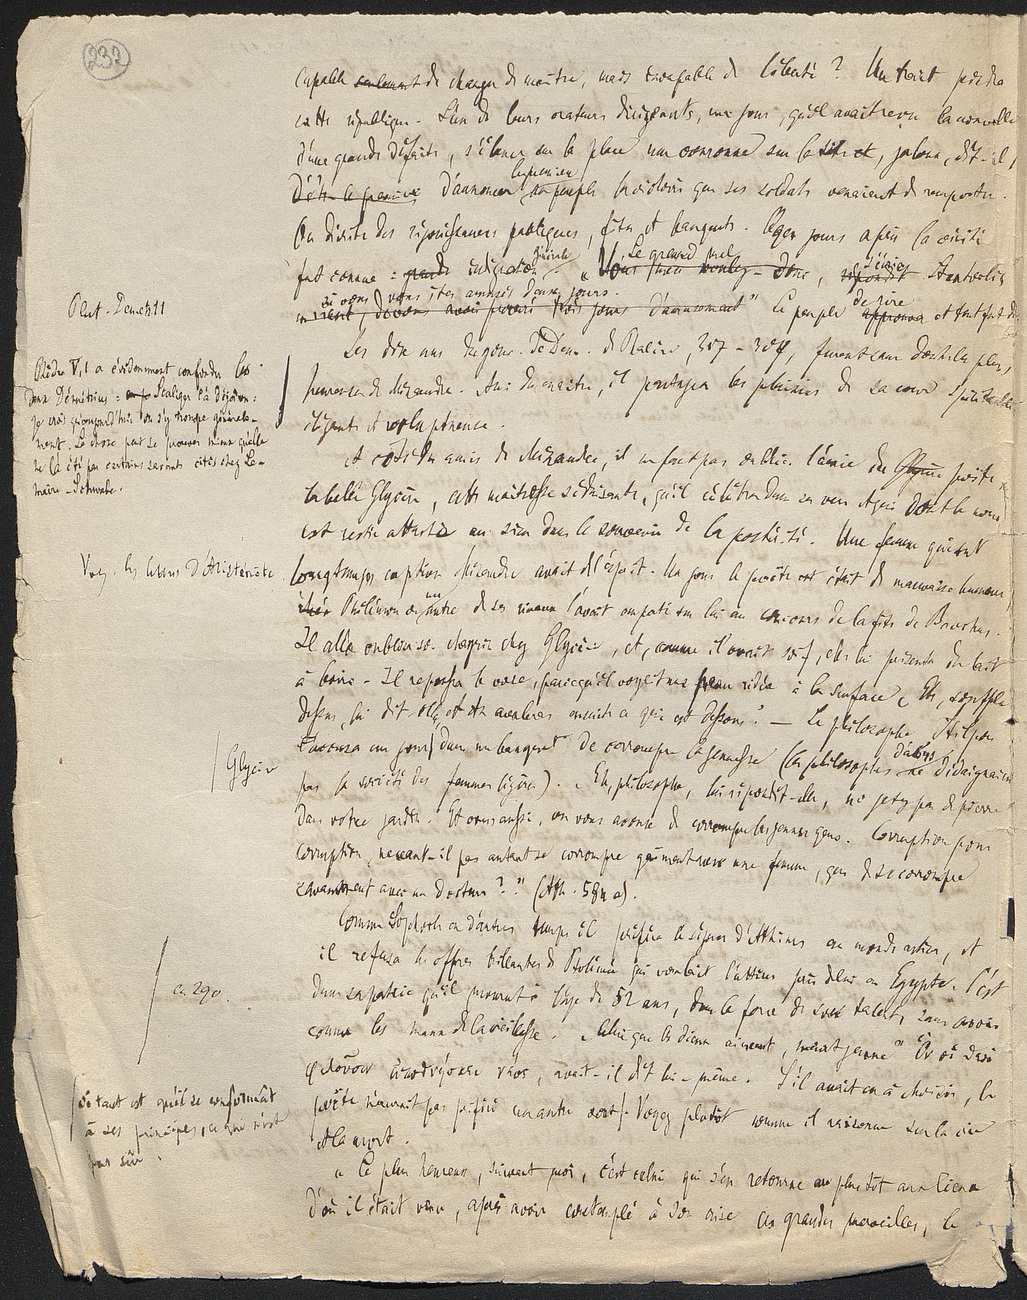 232
capable seulement de changer de maître, mais incapable de liberté ? Un trait peindra
cette république. L'un de leurs orateurs dirigeants, un jour, qu'il avait reçu la nouvelle
d'une grande défaite, s'élance sur la place une couronne sur la tête et, jaloux, dit-il,
D'être le premier d'annoncer le premier au peuple la victoire que ses soldats venaient de remporter.
On décrète des réjouissances publiques, fêtes et banquets. Qques jours après la vérité
fut connue : grande indignation générale. « Le grand mal s'écrie Stratoclès
si vous vous êtes amusés deux jours. trois jours d'amusement" Le peuple approuva de rire et tout fut dit
Plut. Demetr. 11
Les dix ans de gouv. de Dém. de Phalère, 317 - 307, furent sans doute les plus
heureuses de Ménandre. Ami du maître, il partagea les plaisirs de sa cour spirituelle
élégante et voluptueuse.
Phèdre V, 1 a évidemment confondu les
deux Démétrius : Scaliger l'a déjà vu :
je crois qu'aujourd'hui on s'y trompe générale-
ment. La chose peut se prouver mieux qu'elle
ne l'a été par certains savants cités chez Le-
maire - Schwabe.
Et à côté des amis de Ménandre, il ne faut pas oublier l'amie du Glycère poète
la belle Glycère, cette maîtresse séduisante, qu'il célébra dans ses vers et qui dont le nom
est resté attaché au sien dans le souvenir de la postérité. Une femme qui sut
Voy. les lettres d'Aristénète
longtemps captiver Ménandre avait de l'esprit. Un jour le poète était de mauvaise humeur,
Philémon ou un autre de ses rivaux l'avait emporté sur lui au concours de la fête de Bacchus.
Il alla oublier son chagrin chez Glycère, et, comme il avait soif, elle lui présenta du lait
à boire. Il repoussa le vase, parce qu'il voyait une peau ridée à la surface. « Eh, souffle
dessus, lui dit-elle, et tu avaleras ensuite ce qui est dessous." — Le philosophe Stilpon
Glycère
l'accusa un jour dans un banquet de corrompre la jeunesse (les philosophes d'alors ne dédaignaient
pas la société des femmes légères). « Eh, philosophe, lui répondit-elle, ne jetez pas de pierre
dans votre jardin. Et vous aussi, on vous accuse de corrompre les jeunes gens. Corruption pour
corruption, ne vaut-il pas autant se corrompre gaiement avec une femme, que de se corrompre
savamment avec un docteur ? " (Ath. 584 a).
Comme Sophocle en d'autres temps il préféra le séjour d'Athènes au monde entier, et
il refusa les offres brillantes de Ptolémée qui voulait l'attirer près de lui en Egypte. C'est
en 290.
dans sa patrie qu'il mourut à l'âge de 52 ans, dans la force de son talent, sans avoir
connu les maux de la vieillesse. « Celui que les dieux aiment, meurt jeune " Ὃν οἱ θεοὶ
φιλοῦσιν ἀποθνήσκει νέος, avait-il dit lui-même. S'il avait eu à choisir, le
si tant est qu'il se conformât
à ses principes, ce qui n'est
pas sûr.
poète n'aurait pas préféré un autre sort. Voyez plutôt comme il raisonne sur la vie
et la mort.
« Le plus heureux, suivant moi, c'est celui qui s'en retourne au plus tôt aux lieux
d'où il était venu, après avoir contemplé à son aise ces grandes merveilles, le